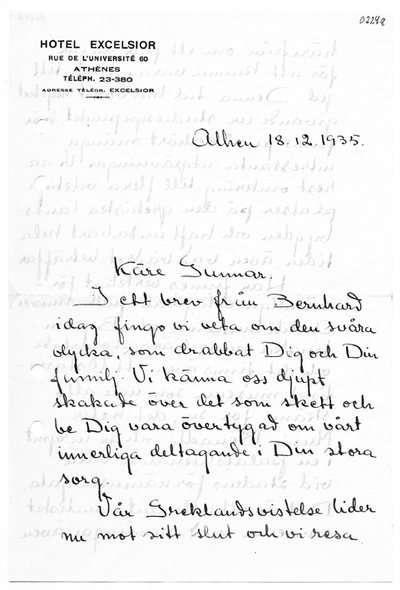 0224a
HOTEL EXCELSIOR
RUE DE L'UNIVERSITÉ 60
ATHÈNES
TÉLÉPH. 23-380
ADRESSE TÉLÉGR. EXCELSIOR
Athen 18.12.1935.
Käre Gunnar.
I ett brev från Bernhard
idag fingo vi veta om den svåra
olycka, som drabbat Dig och Din
familj. Vi känna oss djupt
skakade över det som skett och
be Dig vara övertygad om vårt
innerliga deltagande i Din stora
sorg.
Vår Greklandsvistelse lider
nu mot sitt slut och vi resa